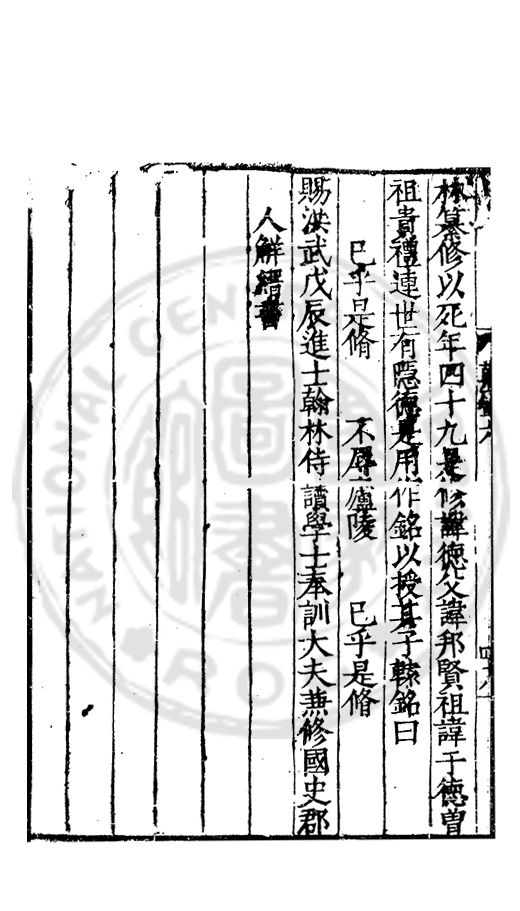 林纂修以死年四十九是修諱德父諱邦賢祖諱于德曽
祖貴禮連世有隱德是用作銘以授其子轅銘曰
已乎是脩 不辱廬陵 已乎是脩
賜洪武戊辰進士翰林侍讀學士奉訓大夫兼修國史郡
人解縉書
NATIONAL CEN
圖書